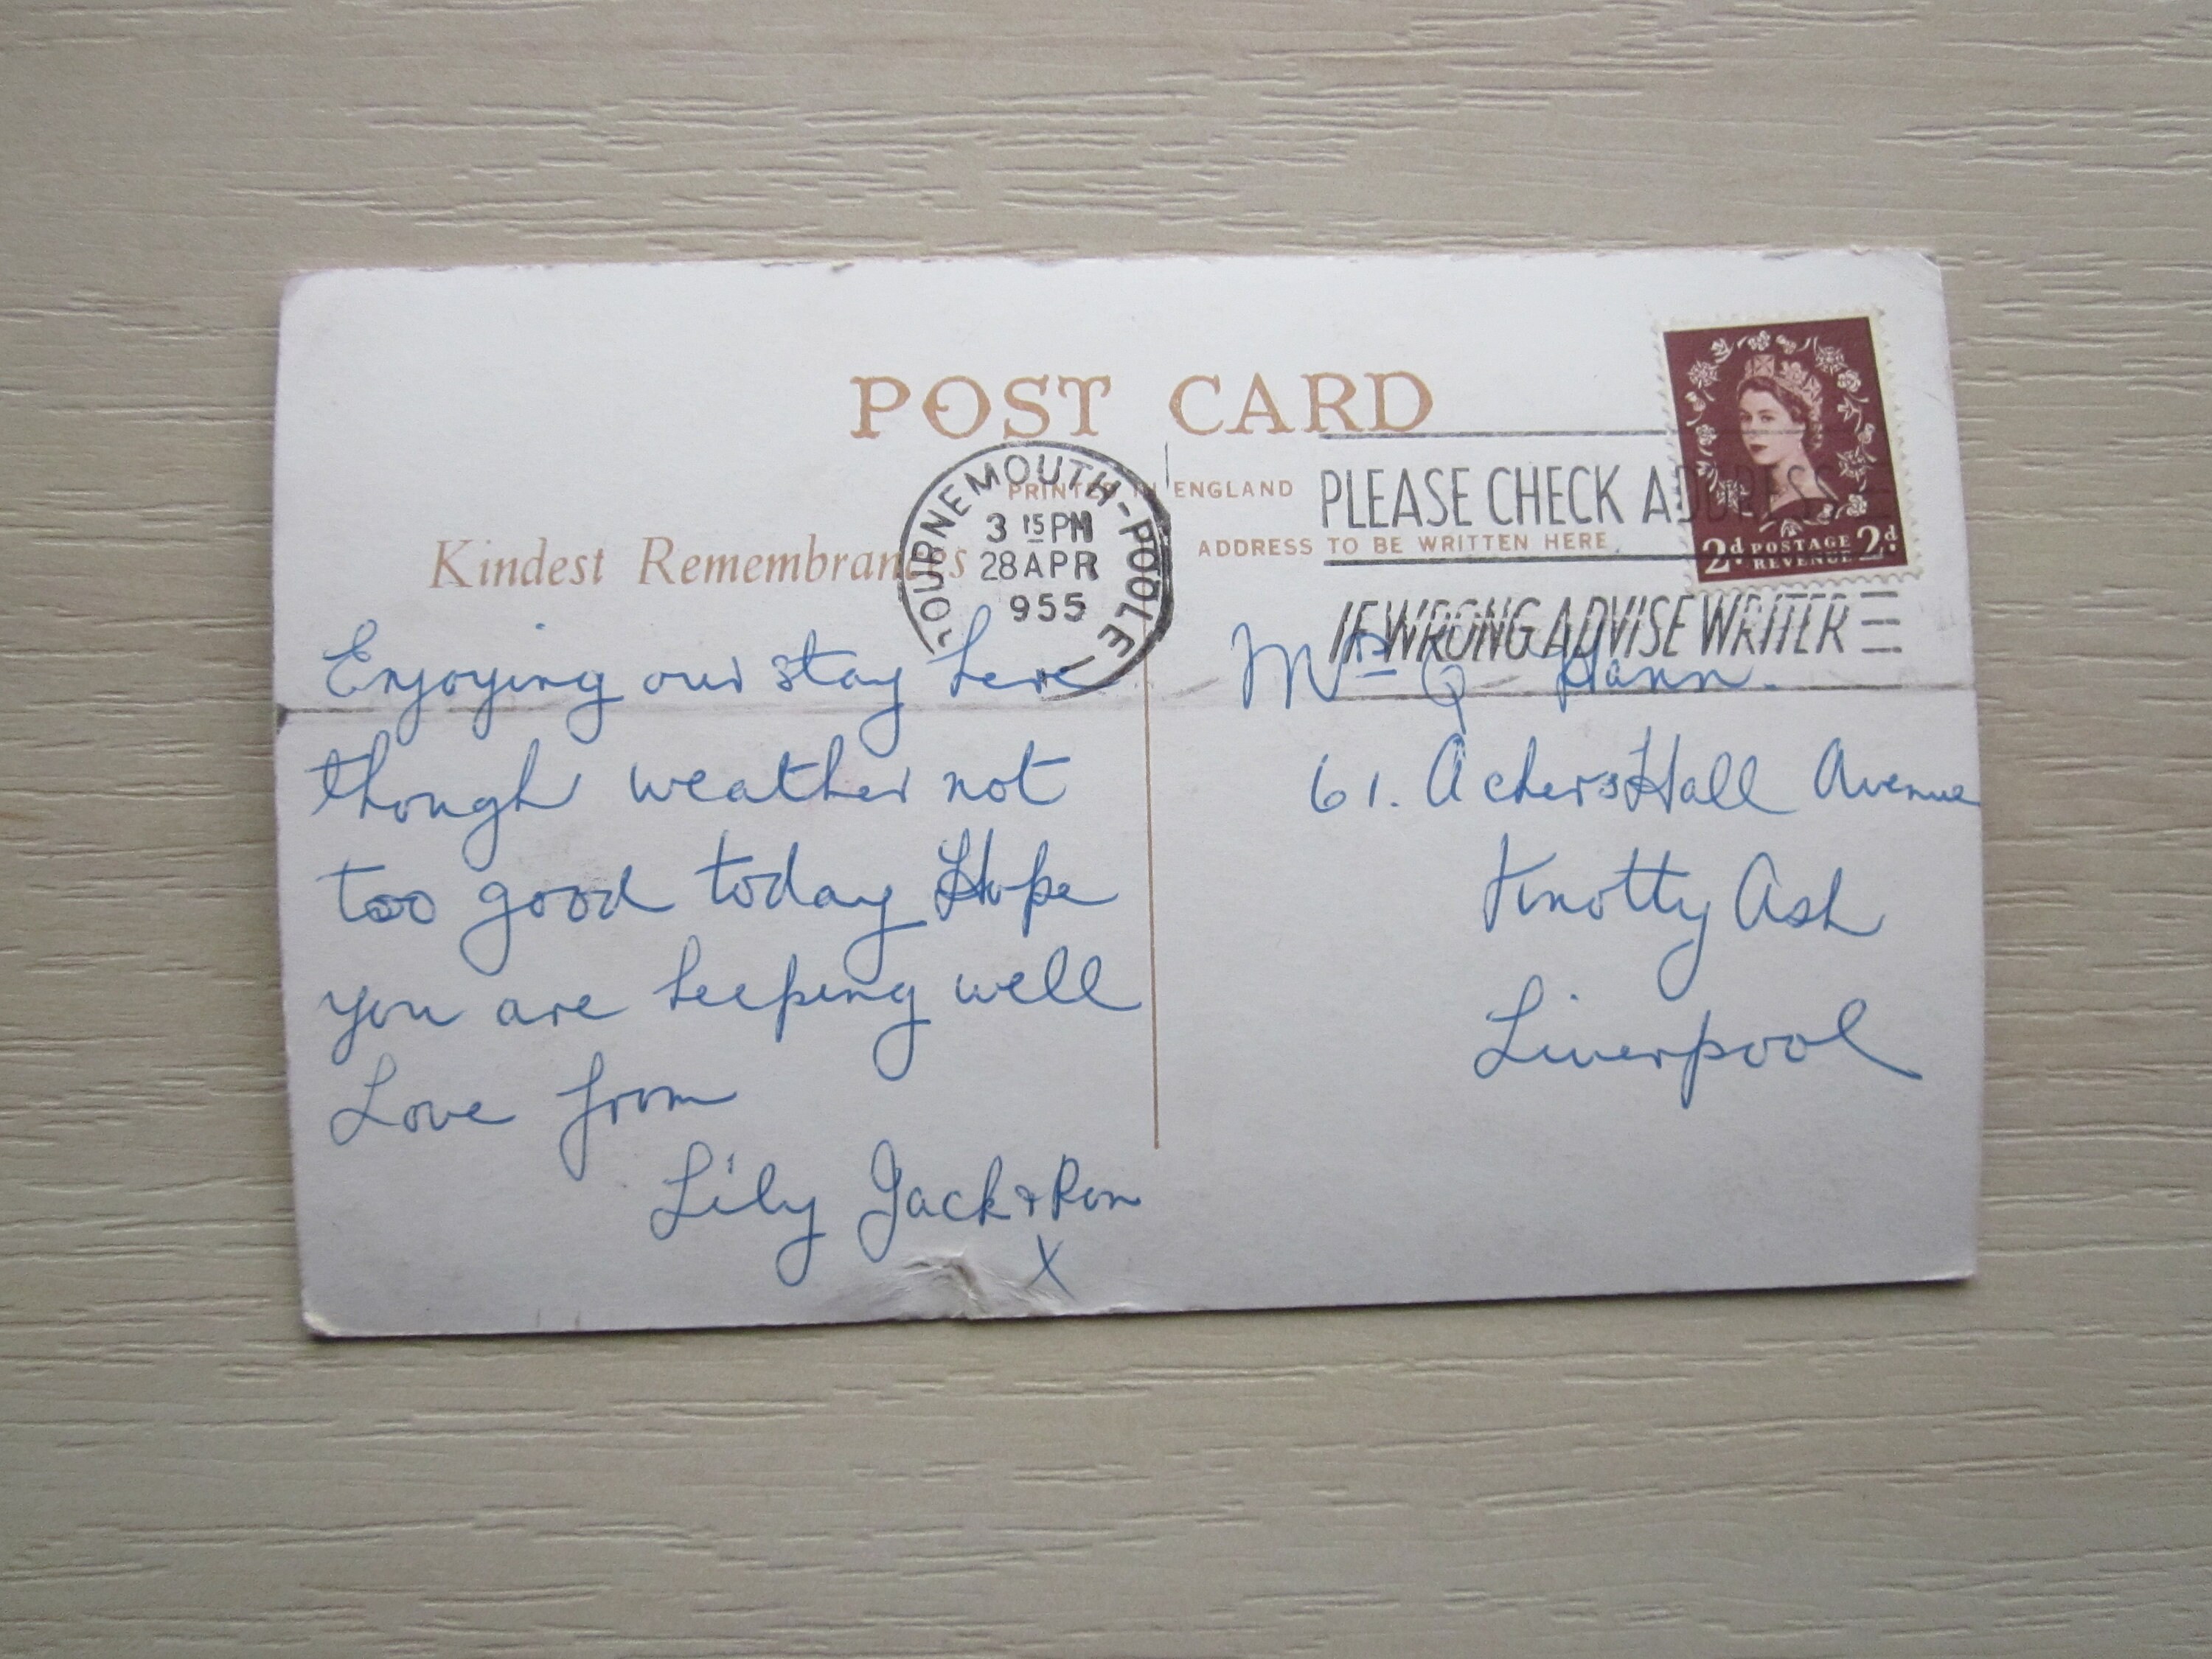 POST CARD
PRINTED IN ENGLAND
Kindest Remembrances
ADDRESS TO BE WRITTEN HERE
OURNEMOUTH-POOLE
3 15 PM
28 APR
955
PLEASE CHECK ADDRESS
IF WRONG ADVISE WRITER
2d POSTAGE 2d
REVENUE
Enjoying our stay here
though weather not
too good today Hope
you are keeping well
Love from
Lily Jack & Ron
X
Hann.
61. Ackers Hall Avenue
Knotty Ash
Liverpool